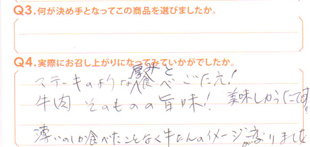 Q3.何が決め手となってこの商品を選びましたか。
Q4.実際にお召し上がりになってみていかがでしたか。
ステーキのような厚みと食べごたえ!
牛肉そのものの旨味! 美味しかったです
薄いのしか食べたことなく牛たんのイメージ変わりました